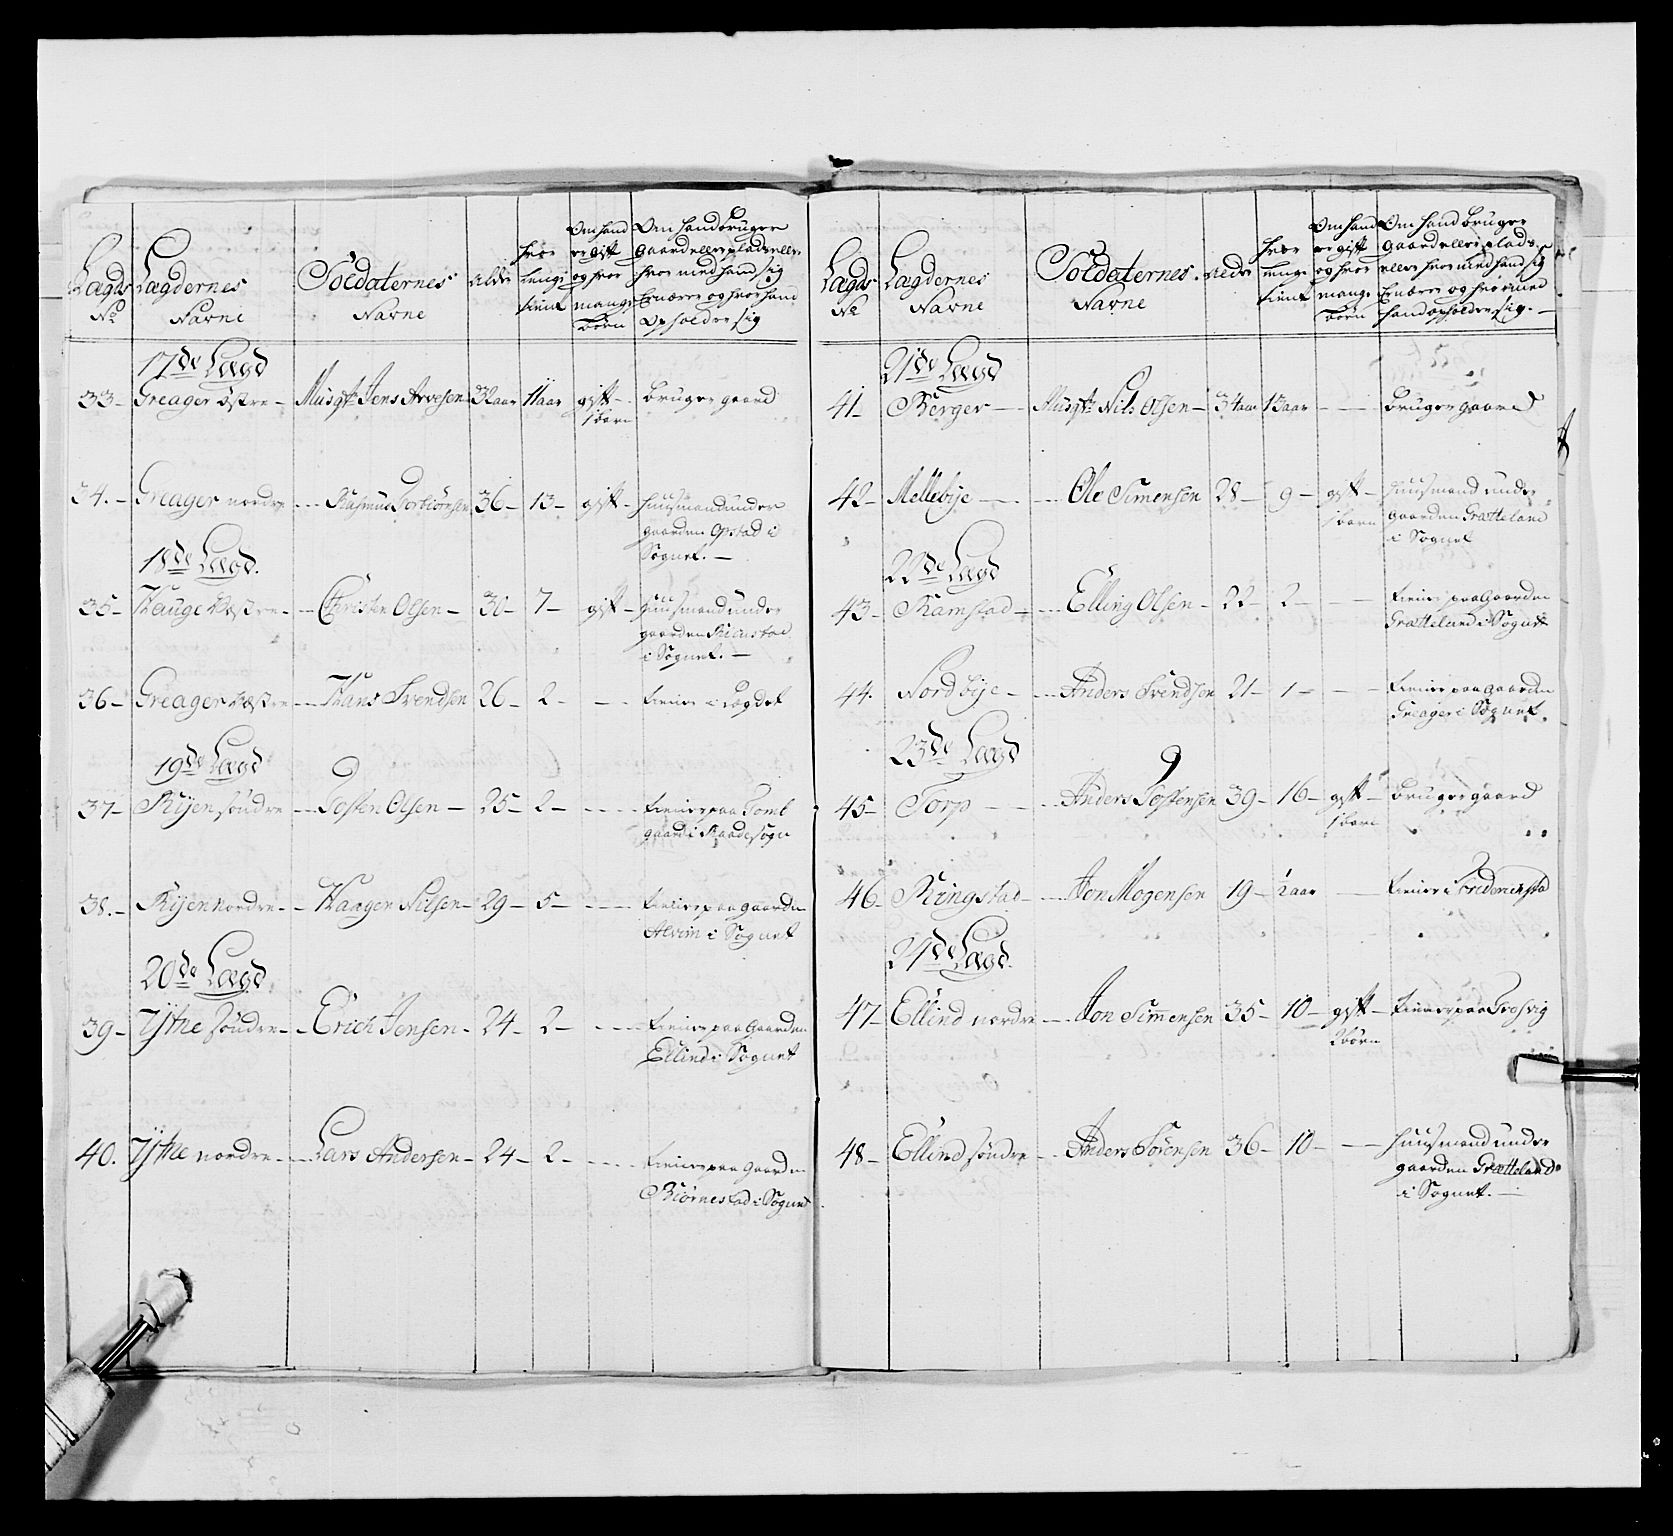 Lægds
No
Lægdernes
Navne
Soldaternes
Navne
Alder
hvor
lenge
tient
Om hand
er gift
og hvor
mange
börn
Om hand bruger
gaard eller plads eller
hvor med hand sig
Ernærer og hvor hand
opholder sig
17de Lægd
33- Greager östre - Musqt: Jens Arvesen 32 aar 11 aar gift - bruger gaard
1 barn
34.- Greager nordre - Rasmus Torbiörnsen 36- 13- gift- huusmand under
gaarden Opstad i
Sognet.-
18de Lægd.
35- Hauge Væstre - Christen Olsen - 30- 7- gift- huusmand under
gaarden
i Sognet.-
36- Greager Væstre - Hans Svendsen 26- 2- - - tiener i Lægdet
19de Lægd
37- Rijen söndre - Tosten Olsen - 25- 2- - - tiener paa Tomb
gaard i Raade sogn
38.- Rijen nordre - Haagen Nilsen - 29- 5- - - tiener paa gaarden
Alvim i Sognet
20de Lægd
39- söndre - Erich Jensen - 24- 2- - - tiener paa Gaarden
Ellind i Sognet
40. nordre - Lars Andersen - 24- 2- - - tiener paa gaarden
Biörnestad i Sognet
Lægds
No
Lægdernes
Navne
Soldaternes
Navne
Alder
hvor
lenge
tient
Om hand
er gift
og hvor
mange
börn
Om hand bruger
gaard eller plads
eller hvor med hand sig
Ernærer og hvor med
hand opholder sig.-
21de Lægd
41- Berger - Musqt: Nils Olsen - 34 aar 13 aar - - bruger gaard
42- Mellebije - - Ole Simensen 28- 9- gift- huusmand under
1 barn gaarden Grætteland
i Sognet
22de Lægd
43- Ramstad - - Elling Olsen - 22- 2- - - tiener paa Gaarden
Grætteland i Sognet
44. Nordbije - - Anders Svendsen 21- 1- - - tiener paa gaarden
Greager i Sognet.
23de Lægd
45- Torp - - Anders Tostensen 39- 16- gift- bruger gaard
1 barn
46- Ringstad - - Jon Mogensen 19- ½ aar - tiener i Friderichsta
24de Lægd.
47- Ellind nordre - Jon Simensen 35- 10- gift- tiener paa Trosvig
2 börn
48- Ellind söndre - Anders Sörensen 36- 10- - - huusmand under
gaarden Grætteland
i Sognet.-